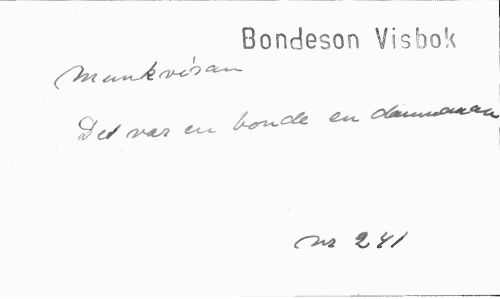 Bondeson Visbok
Munkvisan
Det var en bonde en dannaman
nr 241